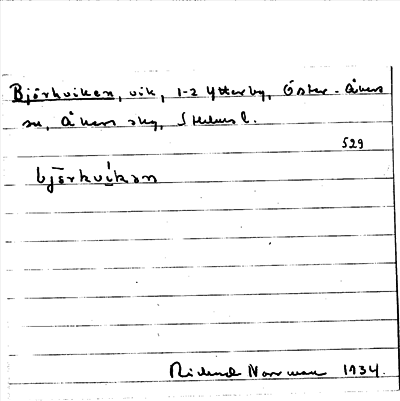 Björkviken, vik, 1-2 Ytterby, Öster-Åkers
sn, Åkers skg, Sthlms l.
529
björkvíkən
Rickard Norrman 1934.